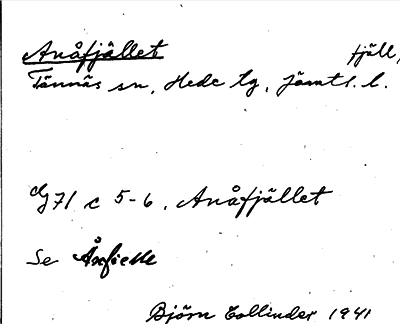 Anåfjället fjäll,
Tännäs sn, Hede tg, Jämtl. l.
71 c 5-6, Anåfjället
Se
Björn Collinder 1941